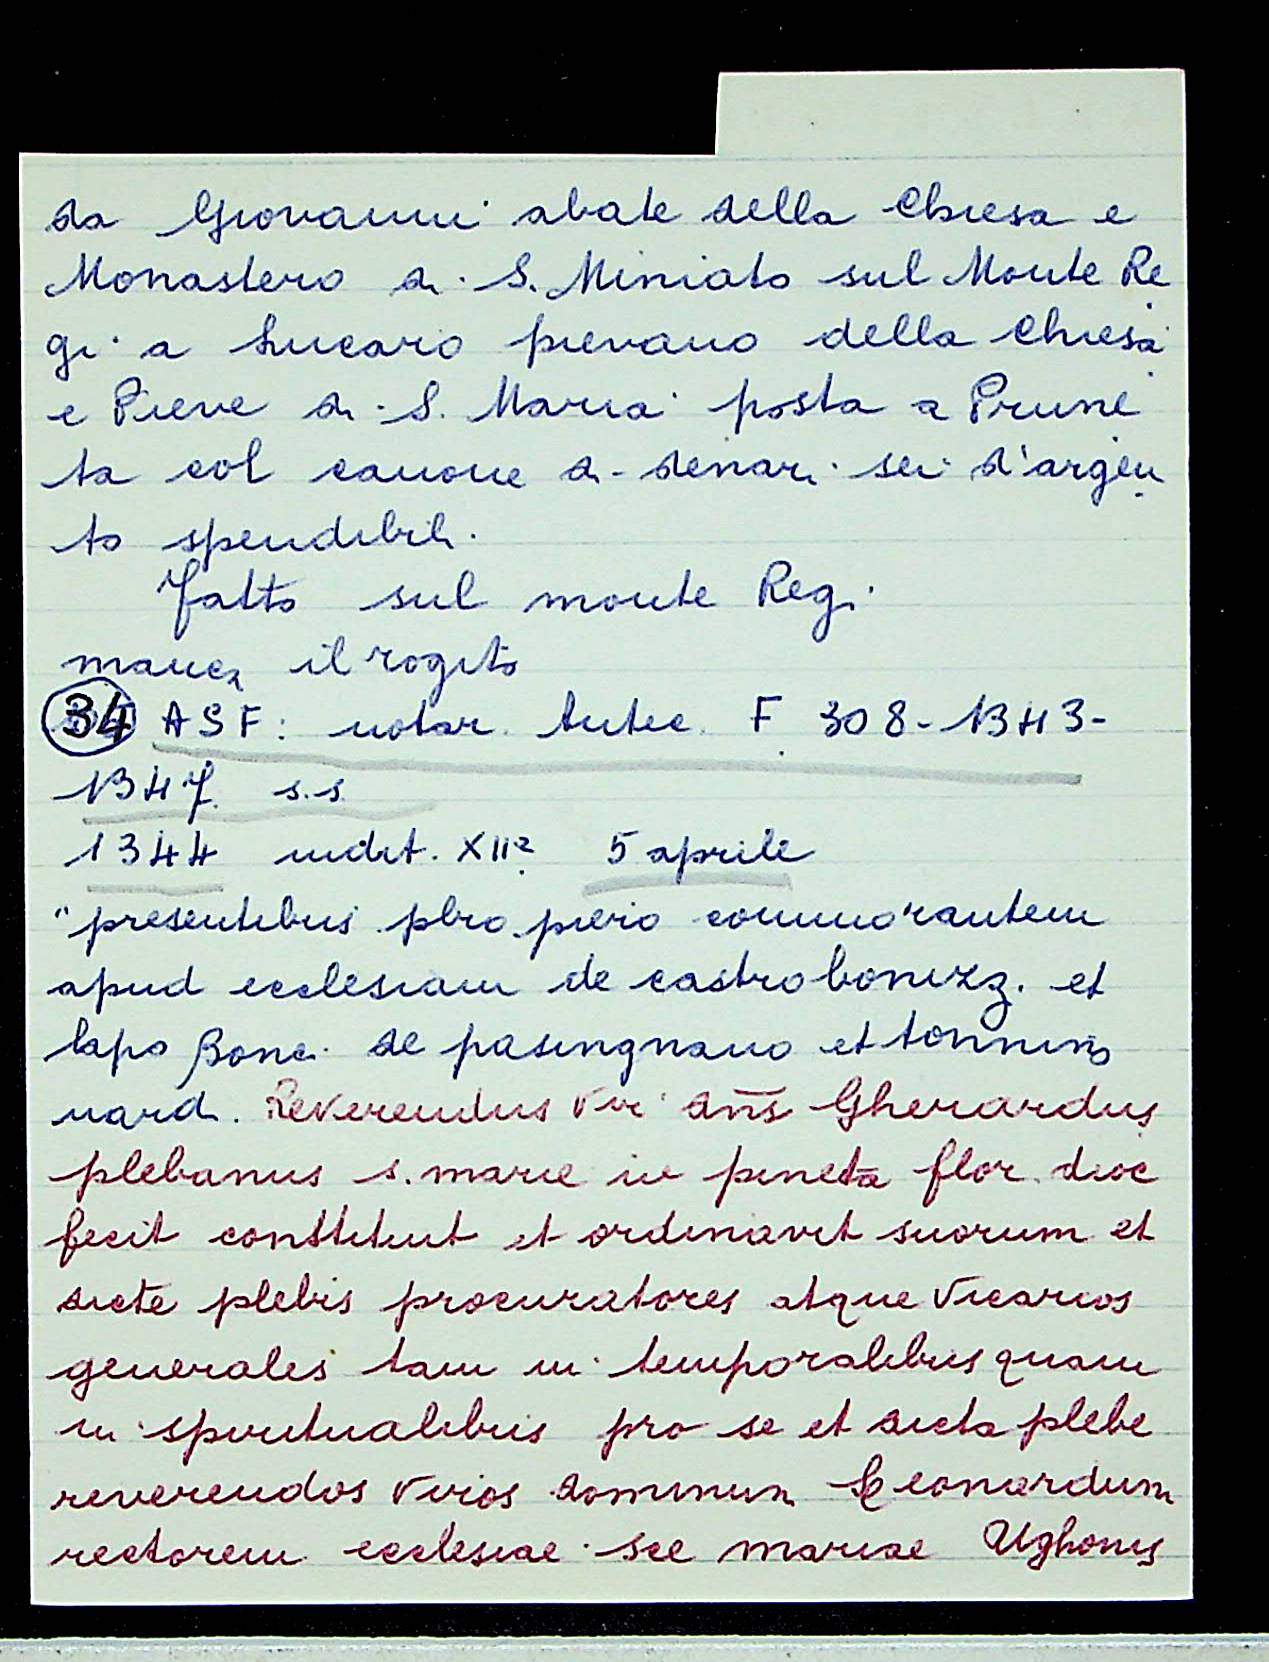 da Giovanni abate della Chiesa e
Monastero di S. Miniato sul Monte Re
gi a Lucaro pievano della Chiesa
e Pieve di S. Maria posta a Prune
ta col canone di denari sei d'argen
to spendibili.
Fatto sul monte Regi
manca il rogito
34 ASF: notar. Antec. F 308-1343-
1347 s.s.
1344 indit. XIIª 5 aprile
"presentibus pbro piero commorantem
apud ecclesiam de castro bonizz. et
lapo Bonci de pasingnano et
nardi. Reverendus Vir dñs Gherardus
plebanus s. marie in pineta flor. dioc
fecit constituit et ordinavit suorum et
dicte plebis procuratores atque Vicarios
generales tam in temporalibus quam
in spiritualibus pro se et dicta plebe
reverendos viros dominum Leonardum
rectorem ecclesiae sce mariae Ughonis